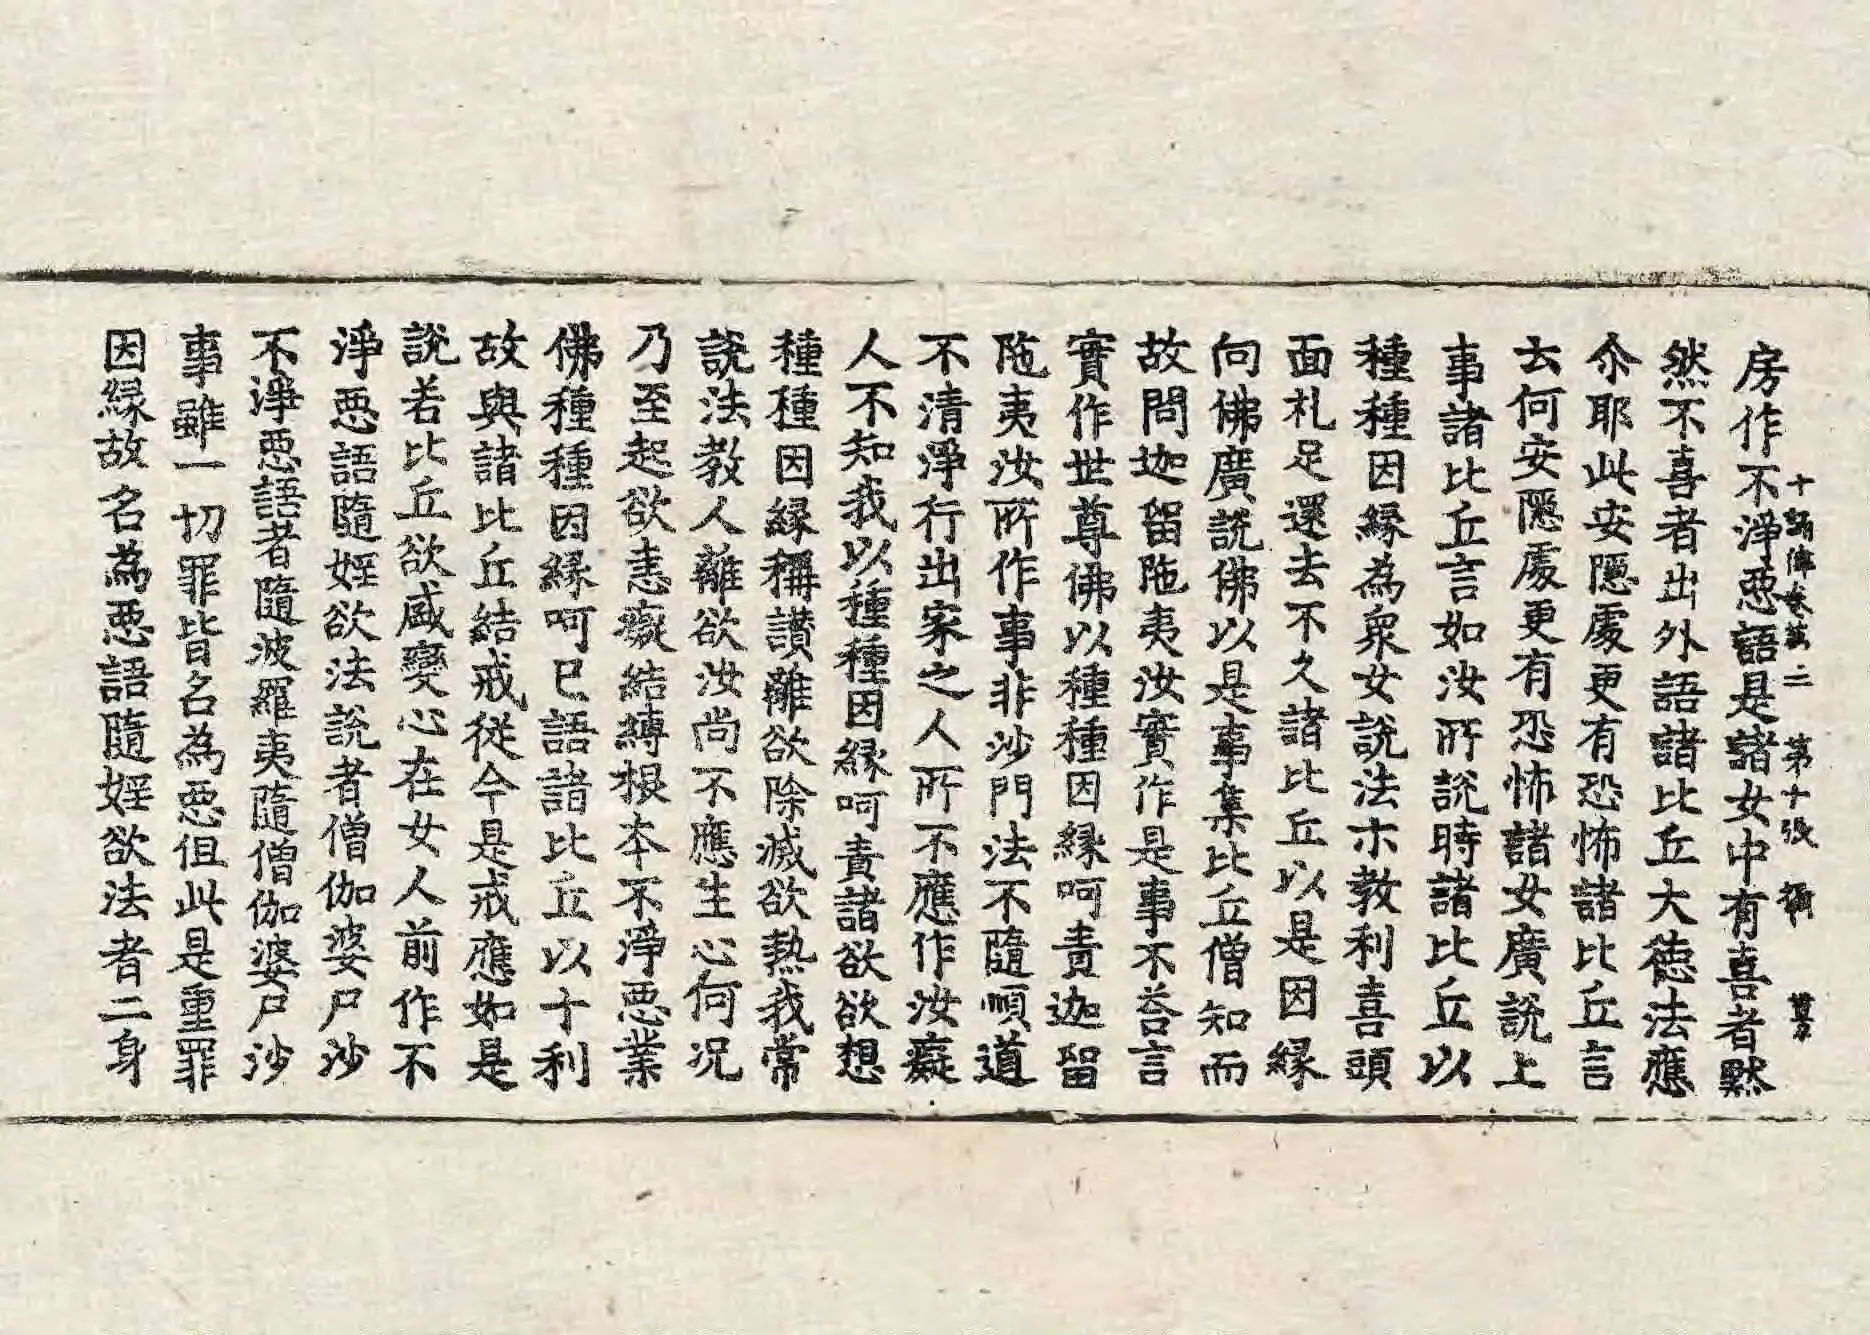 十誦律卷第二　第十張　猗
房作不淨惡語是諸女中有喜者黙
然不喜者出外語諸比丘大德法應
尒耶此安隱處更有恐怖諸比丘言
去何安隱處更有恐怖諸女廣說上
事諸比丘言如汝所說時諸比丘以
種種因緣為衆女說法示教利喜頭
面礼足還去不久諸比丘以是因緣
向佛廣說佛以是事集比丘僧知而
故問迦留陁夷汝實作是事不荅言
實作世尊佛以種種因緣呵責迦留
陁夷汝所作事非沙門法不隨順道
不清淨行出家之人所不應作汝癡
人不知我以種種因緣呵責諸欲欲想
種種因緣稱讃離欲除滅欲熱我常
說法教人離欲汝尚不應生心何况
乃至起欲恚癡結縛根本不淨惡業
佛種種因緣呵已語諸比丘以十利
故與諸比丘結戒從今是戒應如是
說若比丘欲盛變心在女人前作不
淨惡語隨婬欲法說者僧伽婆尸沙
不淨惡語者隨波羅夷隨僧伽婆尸沙
事雖一切罪皆名為惡但此是重罪
因緣故名為惡語隨婬欲法者二身